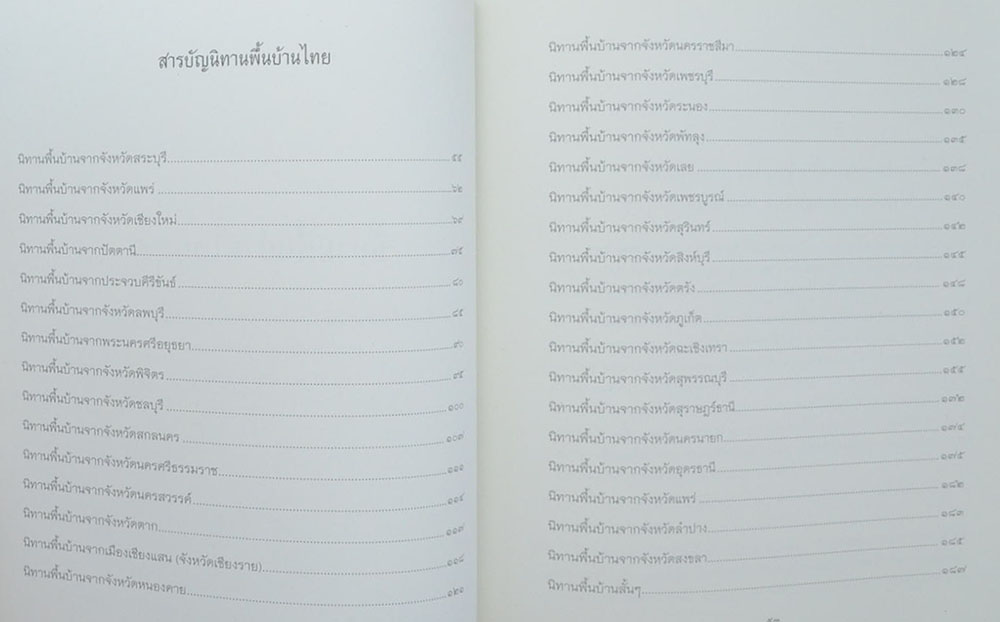 สารบัญนิทานพื้นบ้านไทย
นิทานพื้นบ้านจากจังหวัดสระบุรี ๕๔
นิทานพื้นบ้านจากจังหวัดแพร่ ๖๒
นิทานพื้นบ้านจากจังหวัดเชียงใหม่ ๖๙
นิทานพื้นบ้านจากปัตตานี ๗๔
นิทานพื้นบ้านจากประจวบคีรีขันธ์ ๘๐
นิทานพื้นบ้านจากจังหวัดลพบุรี ๘๕
นิทานพื้นบ้านจากพระนครศรีอยุธยา ๙๐
นิทานพื้นบ้านจากจังหวัดพิจิตร ๙๕
นิทานพื้นบ้านจากจังหวัดชลบุรี ๑๐๐
นิทานพื้นบ้านจากจังหวัดสกลนคร ๑๐๗
นิทานพื้นบ้านจากจังหวัดนครศรีธรรมราช ๑๑๑
นิทานพื้นบ้านจากจังหวัดนครสวรรค์ ๑๑๔
นิทานพื้นบ้านจากจังหวัดตาก ๑๑๗
นิทานพื้นบ้านจากเมืองเชียงแสน (จังหวัดเชียงราย) ๑๑๘
นิทานพื้นบ้านจากจังหวัดหนองคาย ๑๒๑
นิทานพื้นบ้านจากจังหวัดนครราชสีมา ๑๒๔
นิทานพื้นบ้านจากจังหวัดเพชรบุรี ๑๒๘
นิทานพื้นบ้านจากจังหวัดระนอง ๑๓๐
นิทานพื้นบ้านจากจังหวัดพัทลุง ๑๓๕
นิทานพื้นบ้านจากจังหวัดเลย ๑๓๘
นิทานพื้นบ้านจากจังหวัดเพชรบูรณ์ ๑๔๐
นิทานพื้นบ้านจากจังหวัดสุรินทร์ ๑๔๒
นิทานพื้นบ้านจากจังหวัดสิงห์บุรี ๑๔๕
นิทานพื้นบ้านจากจังหวัดตรัง ๑๔๘
นิทานพื้นบ้านจากจังหวัดภูเก็ต ๑๕๐
นิทานพื้นบ้านจากจังหวัดฉะเชิงเทรา ๑๕๒
นิทานพื้นบ้านจากจังหวัดสุพรรณบุรี ๑๕๕
นิทานพื้นบ้านจากจังหวัดสุราษฎร์ธานี ๑๗๒
นิทานพื้นบ้านจากจังหวัดนครนายก ๑๗๔
นิทานพื้นบ้านจากจังหวัดอุดรธานี ๑๗๕
นิทานพื้นบ้านจากจังหวัดแพร่ ๑๘๒
นิทานพื้นบ้านจากจังหวัดลำปาง ๑๘๓
นิทานพื้นบ้านจากจังหวัดสงขลา ๑๘๕
นิทานพื้นบ้านสั้นๆ ๑๘๗